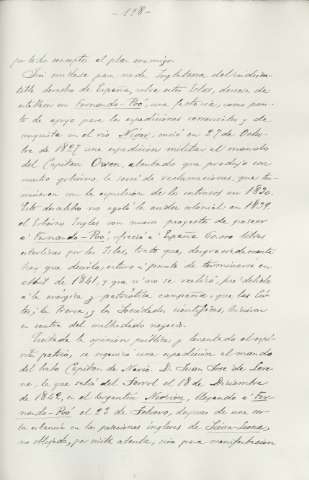 - 198 -
por todo concepto el plan enemigo.
Sin embargo para nada Inglaterra del indiscu-
tible derecho de España, sobre estas Islas, deseosa de
establecer en Fernando-Póo, una factoría, como pun-
to de apoyo para las expediciones comerciales y de
conquista en el río Níger, envió en 27 de Octu-
bre de 1827 una expedición militar al mando
del Capitán Owen, atentado que produjo con
nuestro gobierno, la serie de reclamaciones, que ter-
minaron con la expulsión de los intrusos en 1832.
Este desalojo no agotó la audaz colonial en 1839,
el Gobierno Inglés con nuevo proyecto de poseer
a Fernando-Póo, ofreció a España 60,000 libras
esterlinas por las Islas, trato que, desgraciadamente
hay que decirlo, estuvo a punto de terminarse en
Abril de 1841, y que si no se realizó, fué debido
a la enérgica y patriótica campaña, que las Cor-
tes, la Prensa, y las Sociedades científicas, hicieron
en contra del malhadado negocio.
Excitada la opinión pública y levantado el espí-
ritu patrio, se organizó una expedición al mando
del bravo Capitán de Navío, D. Juan José de Lere-
na, la que salió del Ferrol el 18 de Diciembre
de 1842, en el bergantín Nervión, llegando a Fer-
nando-Póo el 23 de Febrero, después de una cor-
ta estancia en las posesiones inglesas de Sierra-Leona,
no obligada, por visita alguna, sino para manifestación